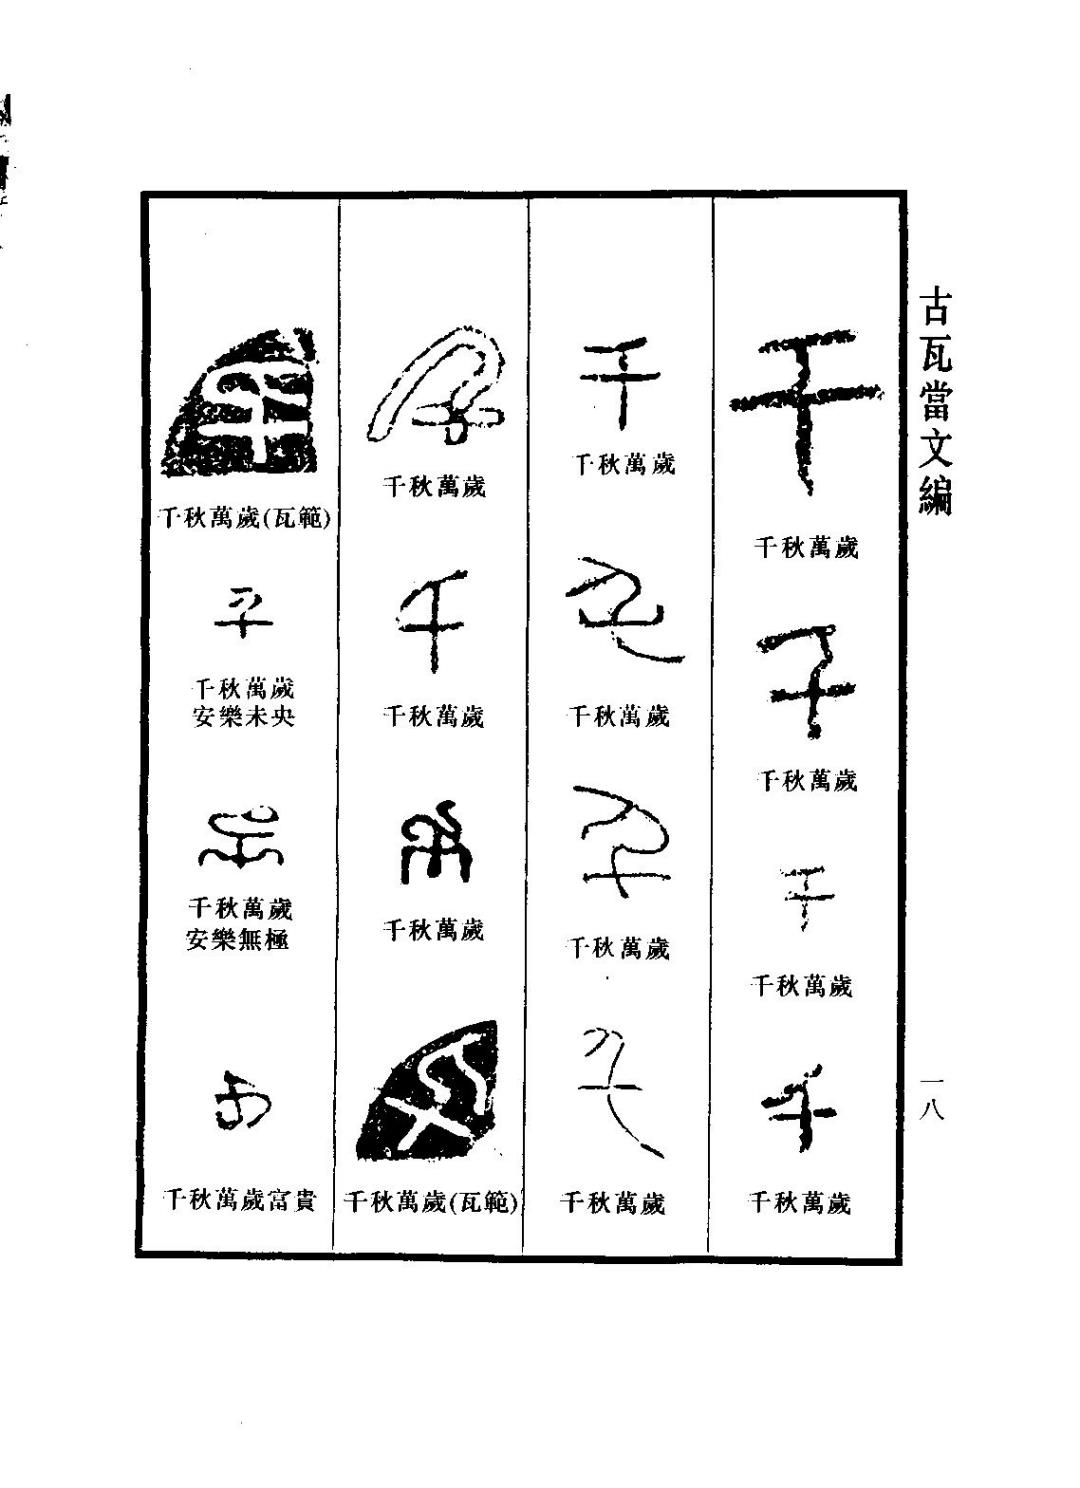 古瓦當文編
一八
千
千秋萬歲
千
千秋萬歲
千
千秋萬歲
千
千秋萬歲
千
千秋萬歲
千
千秋萬歲
千
千秋萬歲
千
千秋萬歲
千
千秋萬歲
千
千秋萬歲
千
千秋萬歲
千
千秋萬歲(瓦範)
千
千秋萬歲(瓦範)
千
千秋萬歲
安樂未央
千
千秋萬歲
安樂無極
千
千秋萬歲富貴